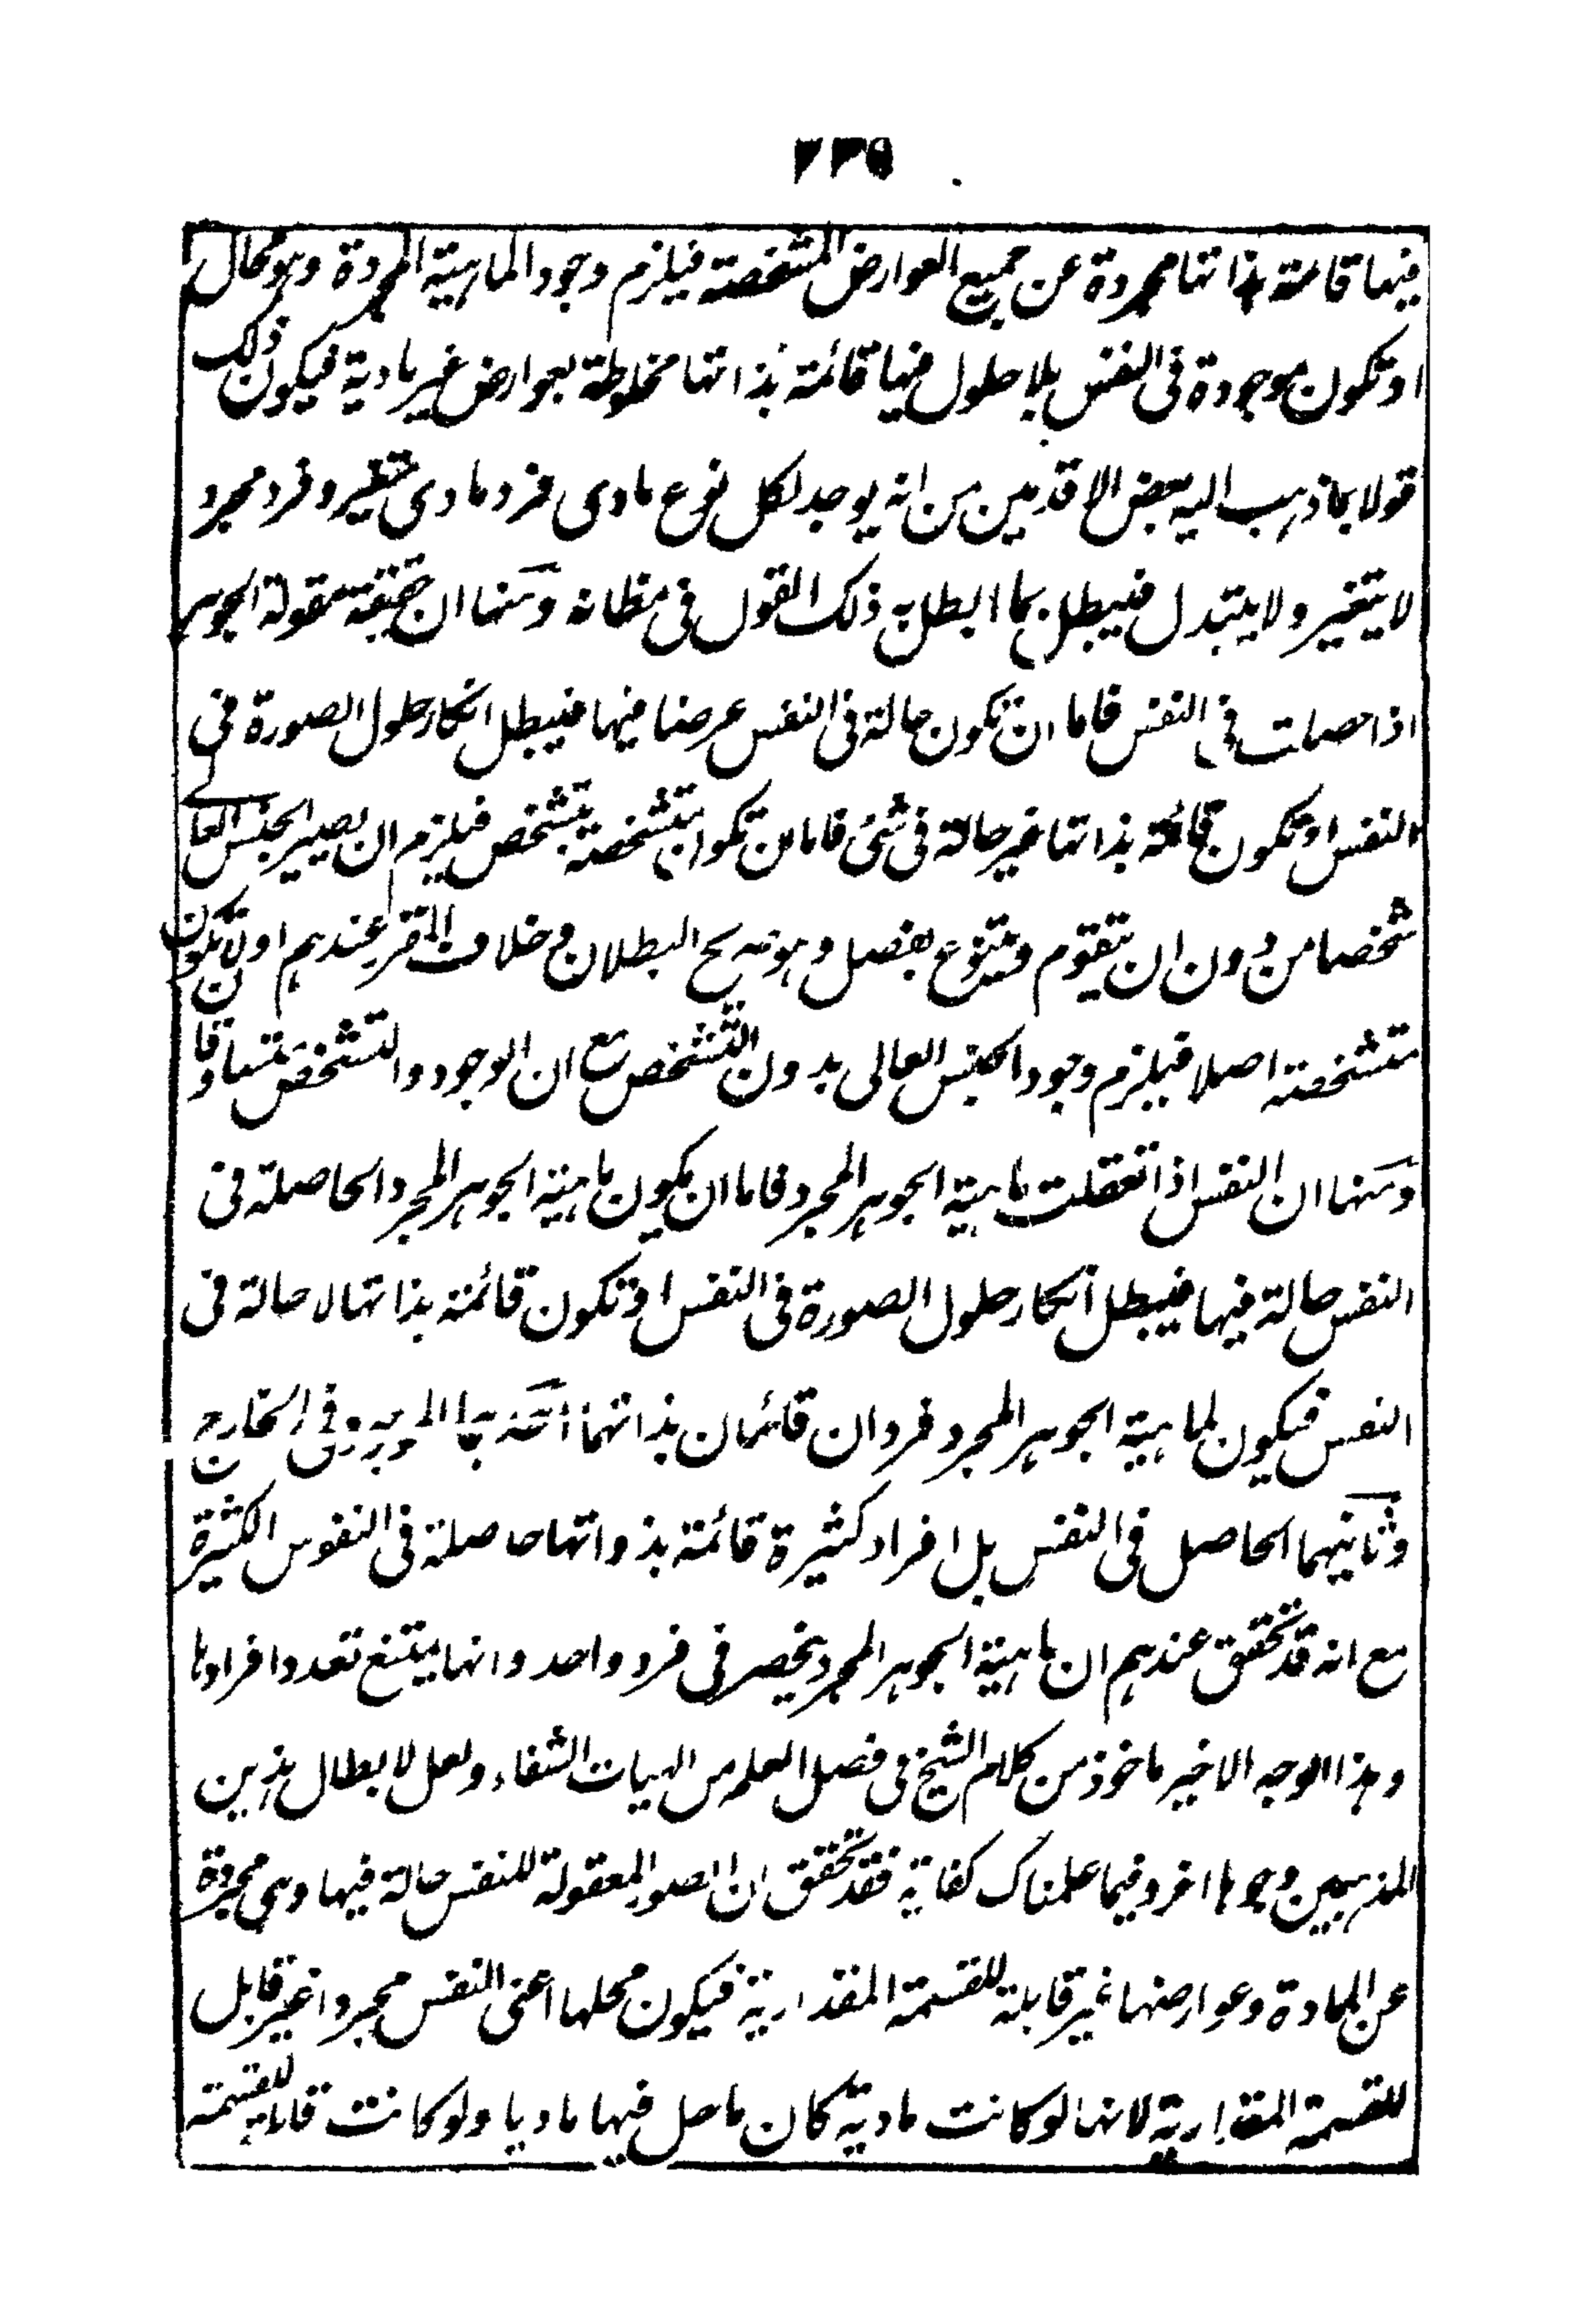 ٢٣٩
فيها قائمة بذاتها مجردة عن جميع العوارض المشخصة فيلزم وجود الماهية المجردة وهو محال
او تكون موجودة فى النفس بلا حلول فيها قائمة بذاتها مخلوطة بعوارض غير مادية فيكون ذلك
قولا بما ذهب اليه بعض الاقدمين من انه يوجد لكل نوع مادى فرد مادى متغير وفرد مجرد
لا يتغير ولا يتبدل فيبطل بما ابطل به ذلك القول فى مظانه ومنها ان حقيقة مقولة الجوهر
اذا حصلت فى النفس فاما ان تكون حالة فى النفس عرضا فيها فيبطل انكار حلول الصورة فى
النفس او تكون قائمة بذاتها غير حالة فى شئ فاما ان تكون متشخصة بتشخص فيلزم ان يصير الجنس العالى
شخصا من دون ان يتقوم ويتنوع بفصل وهو صريح البطلان وخلاف المقرر عندهم او لا تكون
متشخصة اصلا فيلزم وجود الجنس العالى بدون التشخص مع ان الوجود والتشخص متساوقان
ومنها ان النفس اذا تعقلت ماهية الجوهر المجرد فاما ان يكون ماهية الجوهر المجرد الحاصلة فى
النفس حالة فيها فيبطل انكار حلول الصورة فى النفس او تكون قائمة بذاتها لا حالة فى
النفس فيكون لماهية الجوهر المجرد فردان قائمان بذاتهما احدهما الموجود فى الخارج
وثانيهما الحاصل فى النفس بل افراد كثيرة قائمة بذواتها حاصلة فى النفوس الكثيرة
مع انه قد تحقق عندهم ان ماهية الجوهر المجرد ينحصر فى فرد واحد وانها يمتنع تعدد افرادها
وهذا الوجه الاخير ماخوذ من كلام الشيخ فى فصل العلم من الهيات الشفاء ولعل لابطال هذين
المذهبين وجوها اخر وفيما علمناك كفاية فقد تحقق ان الصور المعقولة للنفس حالة فيها وهى مجردة
عن المادة وعوارضها غير قابلة للقسمة المقدارية فيكون محلها اعنى النفس مجردا غير قابل
للقسمة المقدارية لانها لو كانت مادية كان ما حل فيها ماديا ولو كانت قابلة للقسمة